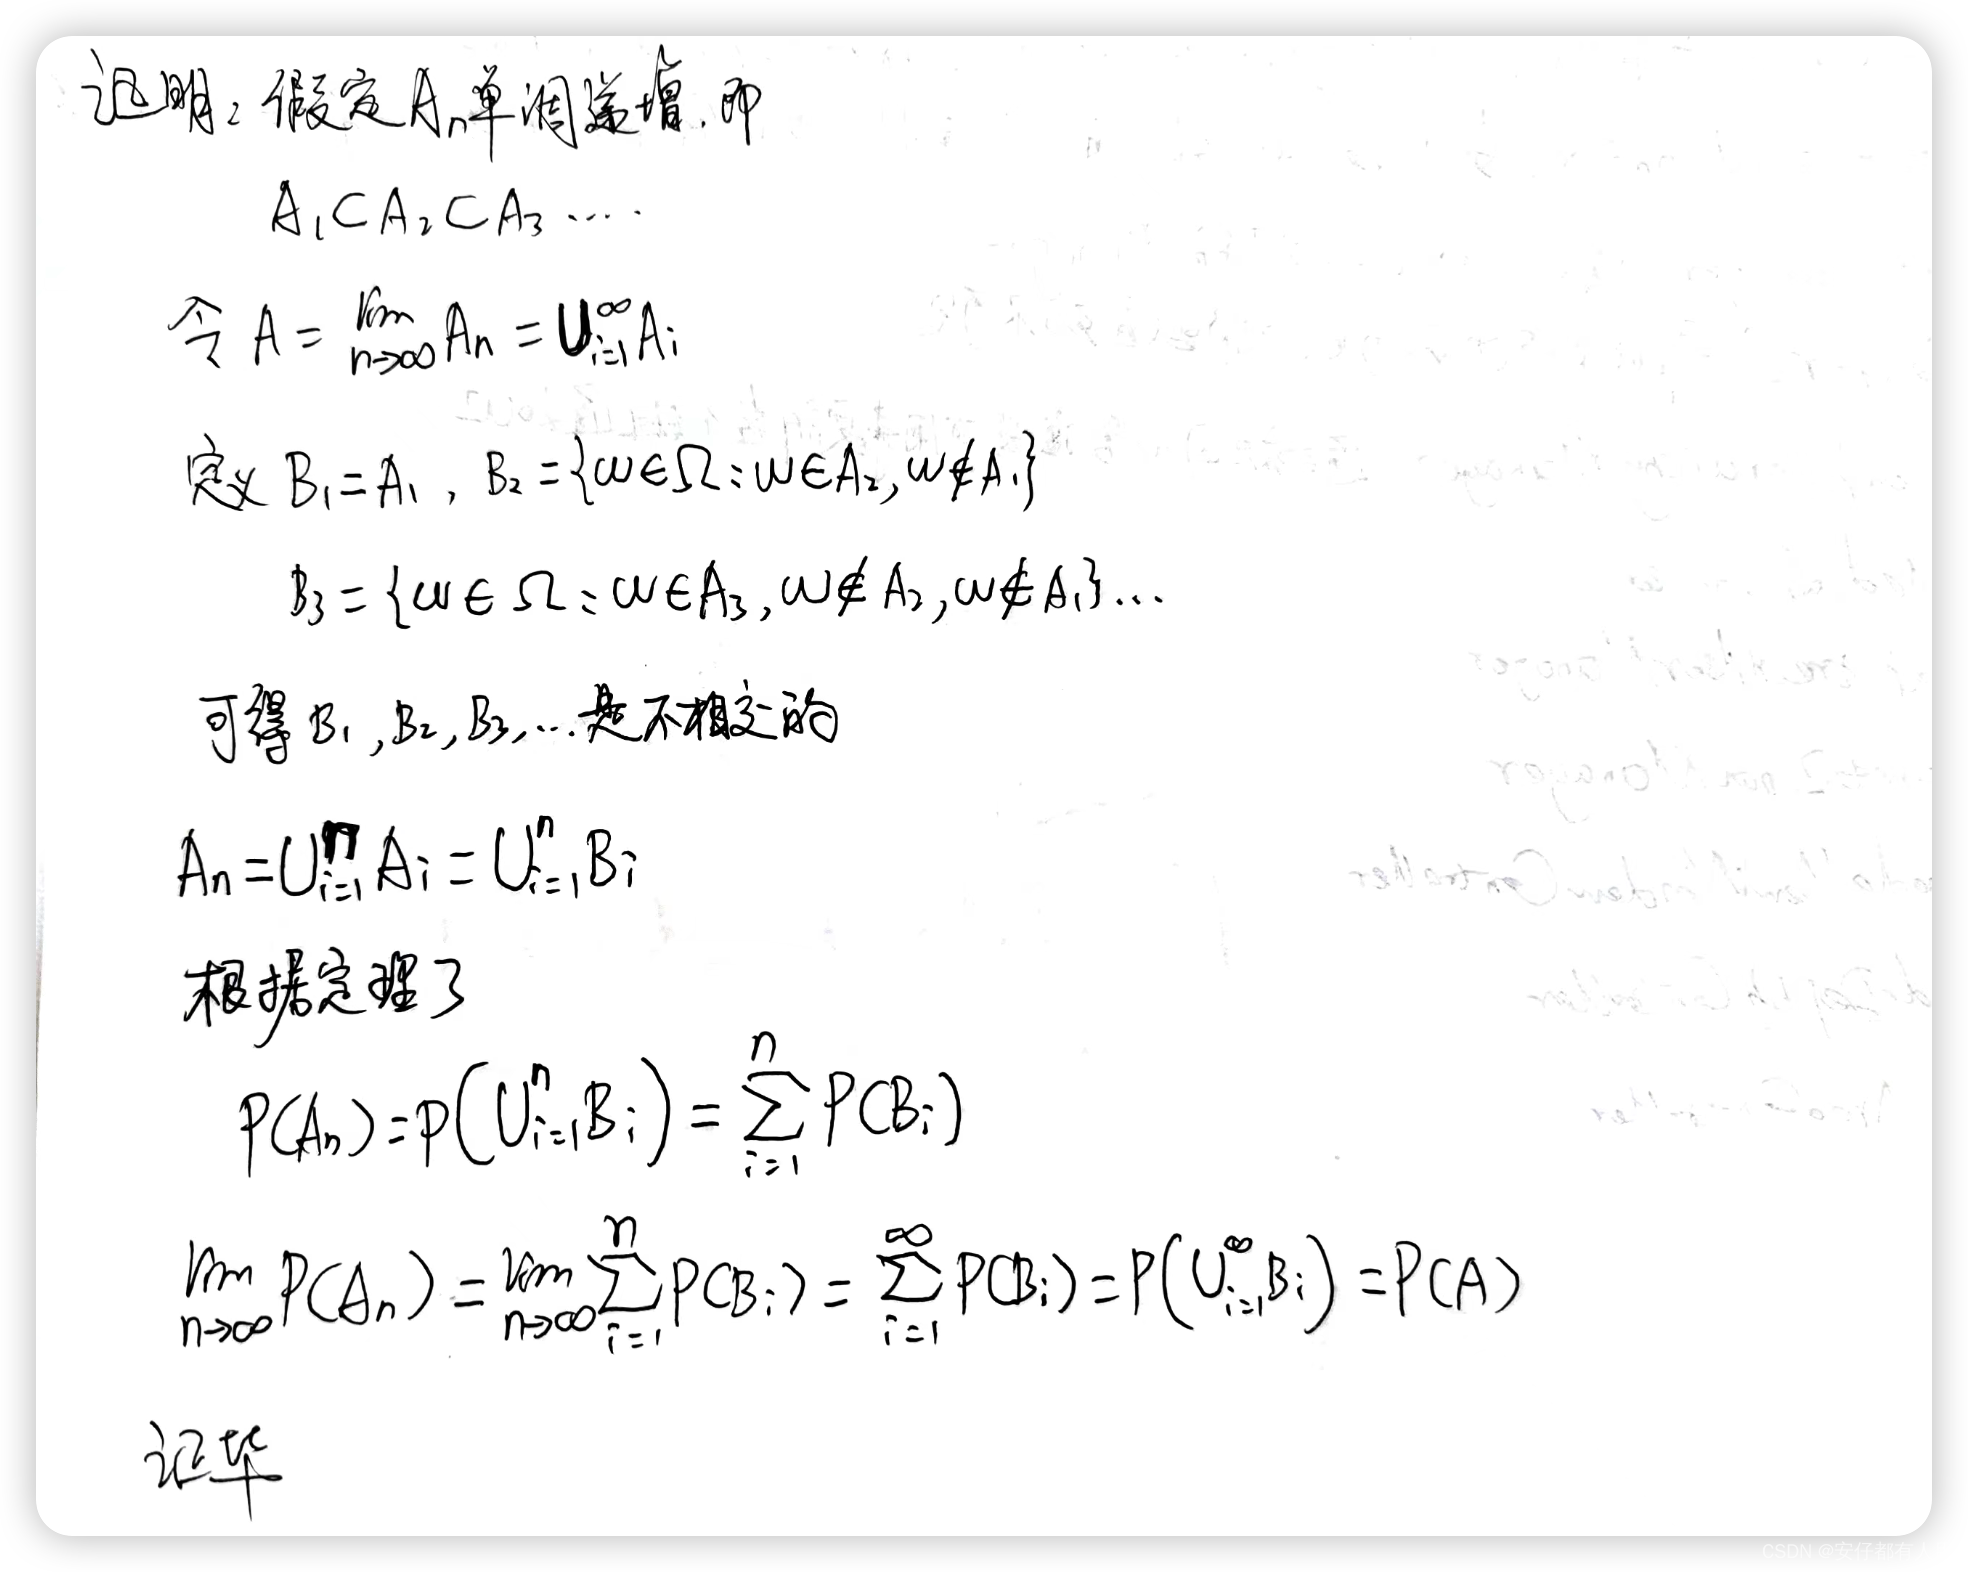 证明：假定Aₙ单调递增.即
A₁⊂A₂⊂A₃.....
令 A = lim_{n→∞} Aₙ = ∪_{i=1}^{∞} Aᵢ
定义 B₁=A₁, B₂={ω∈Ω:ω∈A₂,ω∉A₁}
B₃={ω∈Ω:ω∈A₃,ω∉A₂,ω∉A₁}...
可得 B₁,B₂,B₃,...是不相交的
Aₙ=∪_{i=1}^{n} Aᵢ=∪_{i=1}^{n} Bᵢ
根据定理3
P(Aₙ)=P(∪_{i=1}^{n} Bᵢ)=∑_{i=1}^{n} P(Bᵢ)
lim_{n→∞} P(Aₙ)=lim_{n→∞} ∑_{i=1}^{n} P(Bᵢ)=∑_{i=1}^{∞} P(Bᵢ)=P(∪_{i=1}^{∞} Bᵢ)=P(A)
证毕
CSDN @安仔都有